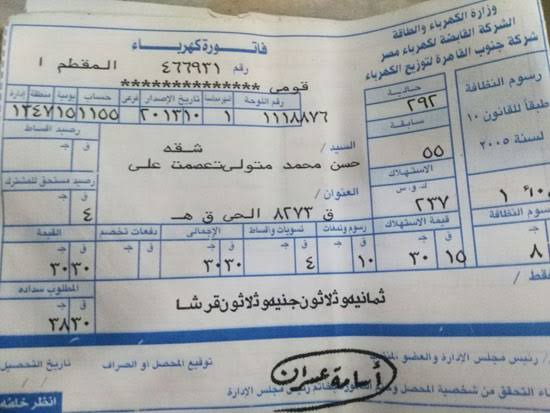 وزارة الكهرباء والطاقة
الشركة القابضة لكهرباء مصر
شركة جنوب القاهرة لتوزيع الكهرباء
فاتورة كهرباء
رقم ٤٦٦٩٣١ المقطم ا
قومى **************
رقم اللوحة تاريخ الإصدار فرعى حساب يومية منطقة إدارة
١١١٨٨٧٦ ١ ٢٠١٣١٠
رسوم النظافة
طبقا للقانون ١٠
لسنة ٢٠٠٥
حالية
٢٩٢
سابقة
٥٥
الاستهلاك
ك . و . س
٢٣٧
السيد / شقه
حسن محمد متولى
العنوان /
ق ٨٢٧٣ الحى ق هـ
رصيد اقساط
ق جـ
رصيد مستحق للمشترك
ق جـ
٤
رسوم النظافة قيمة الاستهلاك رسوم ودمغات تسويات واقساط الإجمالى دفعات تخصم القيمة
جـ ق جـ ق جـ ق جـ ق جـ ق جـ ق جـ
٨ ١٥ ٣٠ ١٠ ٤ ٣٠٣٠ ٣٠٣٠
المطلوب سداده
ق جـ
٣٨٣٠
فقط / ثمانيه وثلاثون جنيه وثلاثون قرشا
رئيس مجلس الإدارة والعضو توقيع المحصل او الصراف تاريخ التحصيل /
أسامة عسران
التحقق من شخصية المحصل رئيس مجلس الإدارة
انظر خلفه